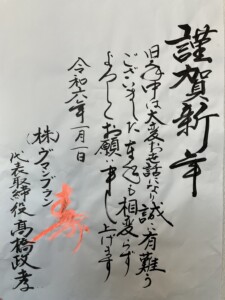 謹賀新年
旧年中は大変お世話になり誠に有難う
ございました 本年も相変らず
よろしくお願い申し上げます
令和六年一月一日
寿
(株)グランプラン
代表取締役 髙橋政孝